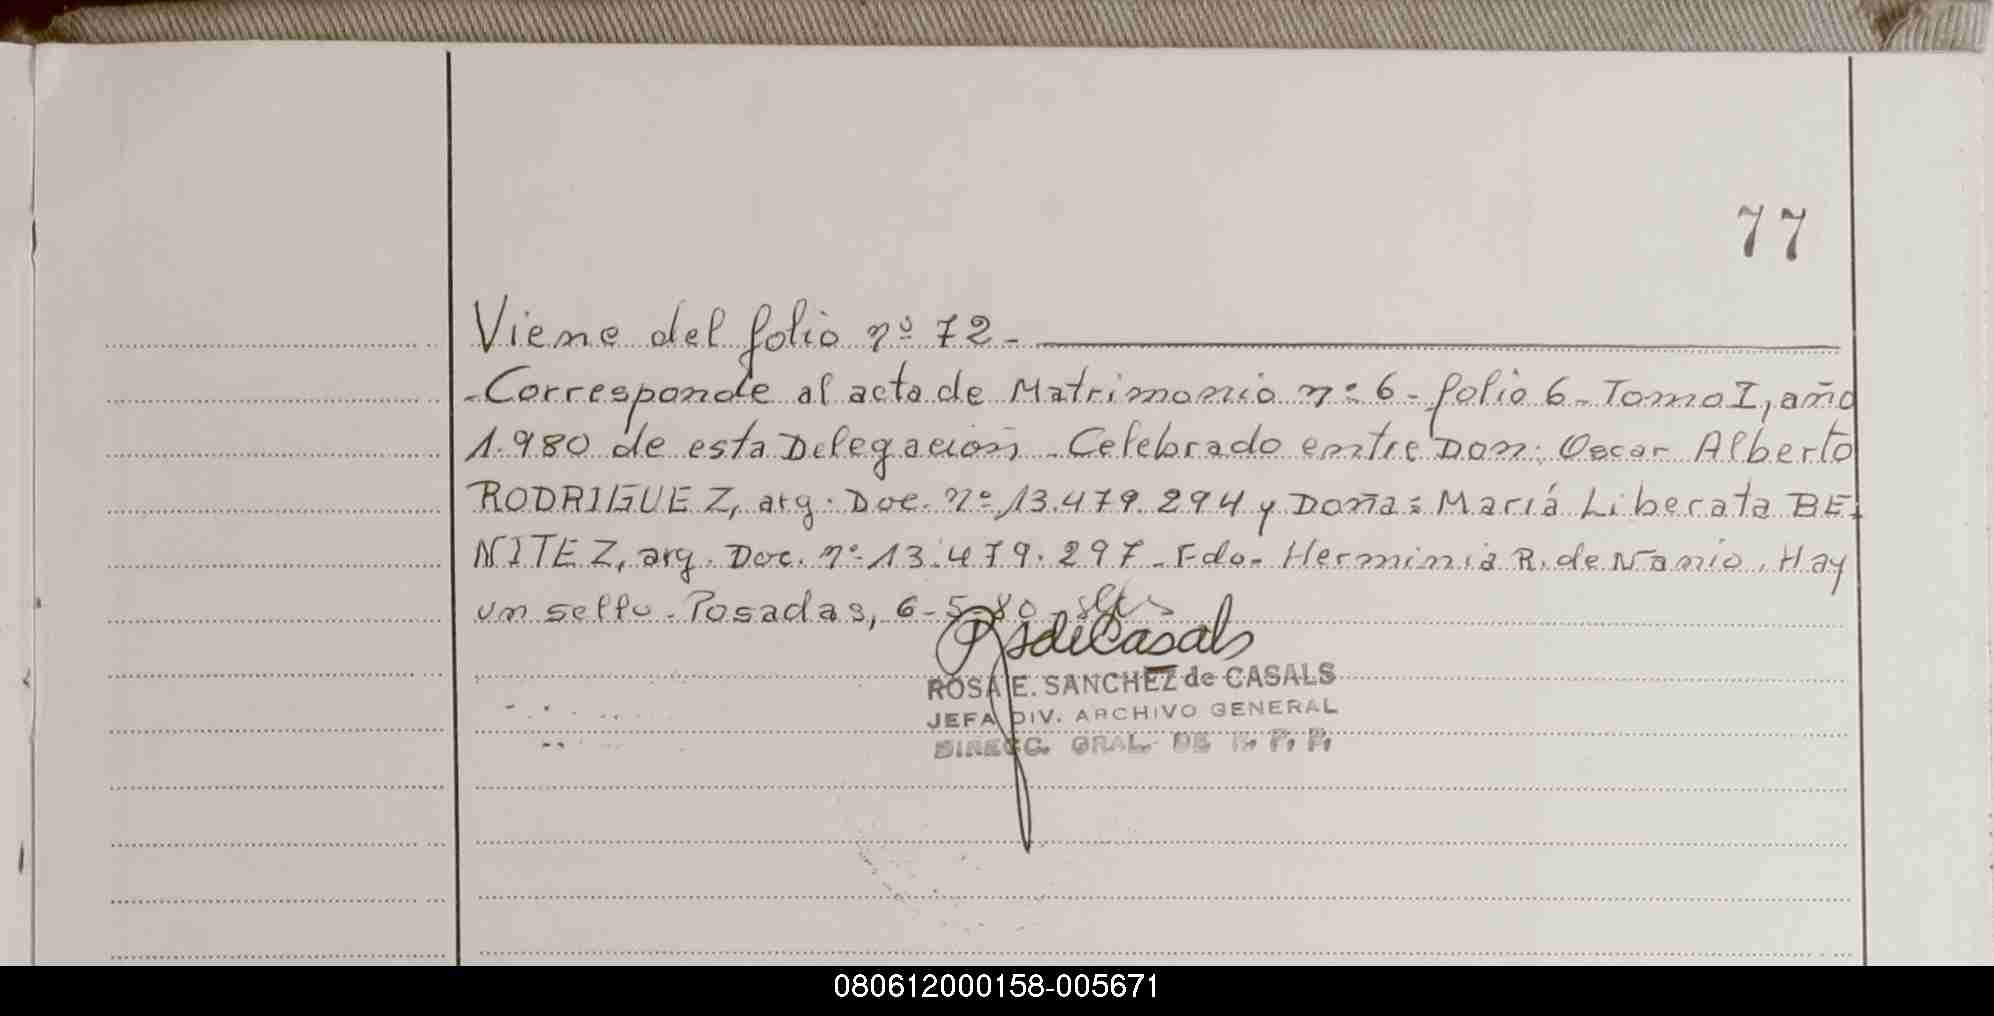 77
Viene del folio nº 72-
-Corresponde al acta de Matrimonio nº 6- folio 6- Tomo I, año
1.980 de esta Delegación - Celebrado entre Don: Oscar Alberto
RODRIGUEZ, arg. Doc. nº 13.479.294 y Doña: Mariá Liberata BE-
NITEZ, arg. Doc. nº 13.479.297- Fdo- Herminia R. de Nanio. Hay
un sello. Posadas, 6-5-80
RSdeCasals
ROSA E. SANCHEZ de CASALS
JEFA DIV. ARCHIVO GENERAL
DIRECC. GRAL. DE R. P. P.
080612000158-005671